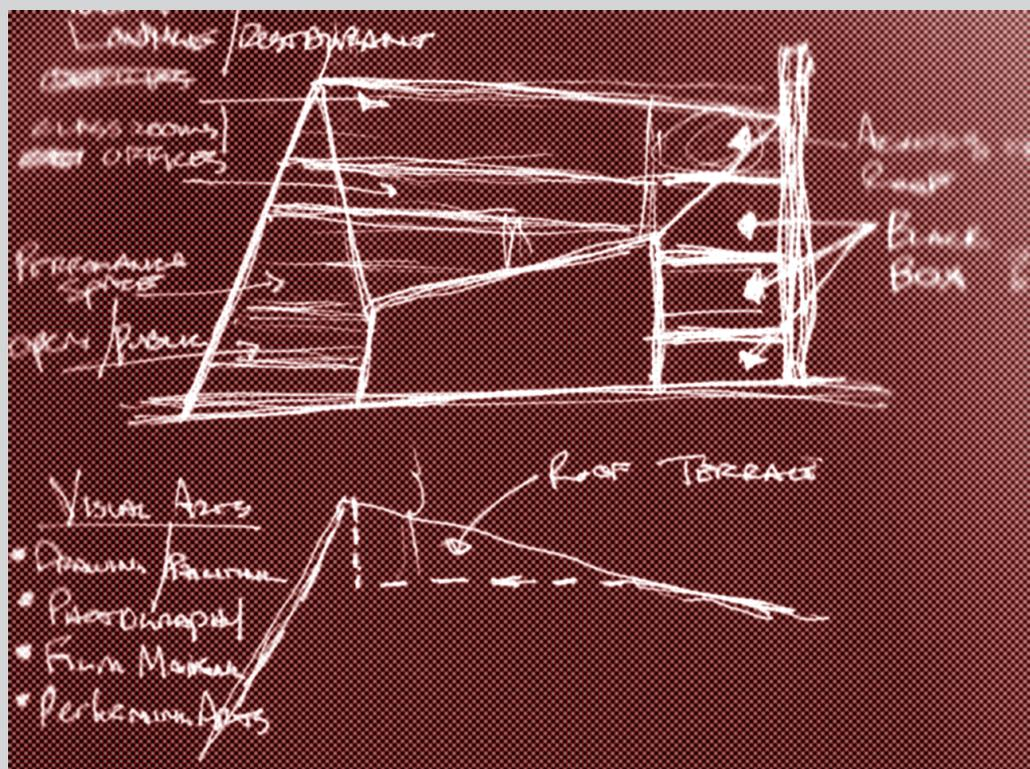 /RESTAURANT
CLASSROOMS
OFFICES
PERFORMANCE
SPACE
OPEN/PUBLIC
ROOF
BLACK
BOX
ROOF TERRACE
VISUAL ARTS
• DRAWING/PAINTING
• PHOTOGRAPHY
• FILM MAKING
• PERFORMING ARTS